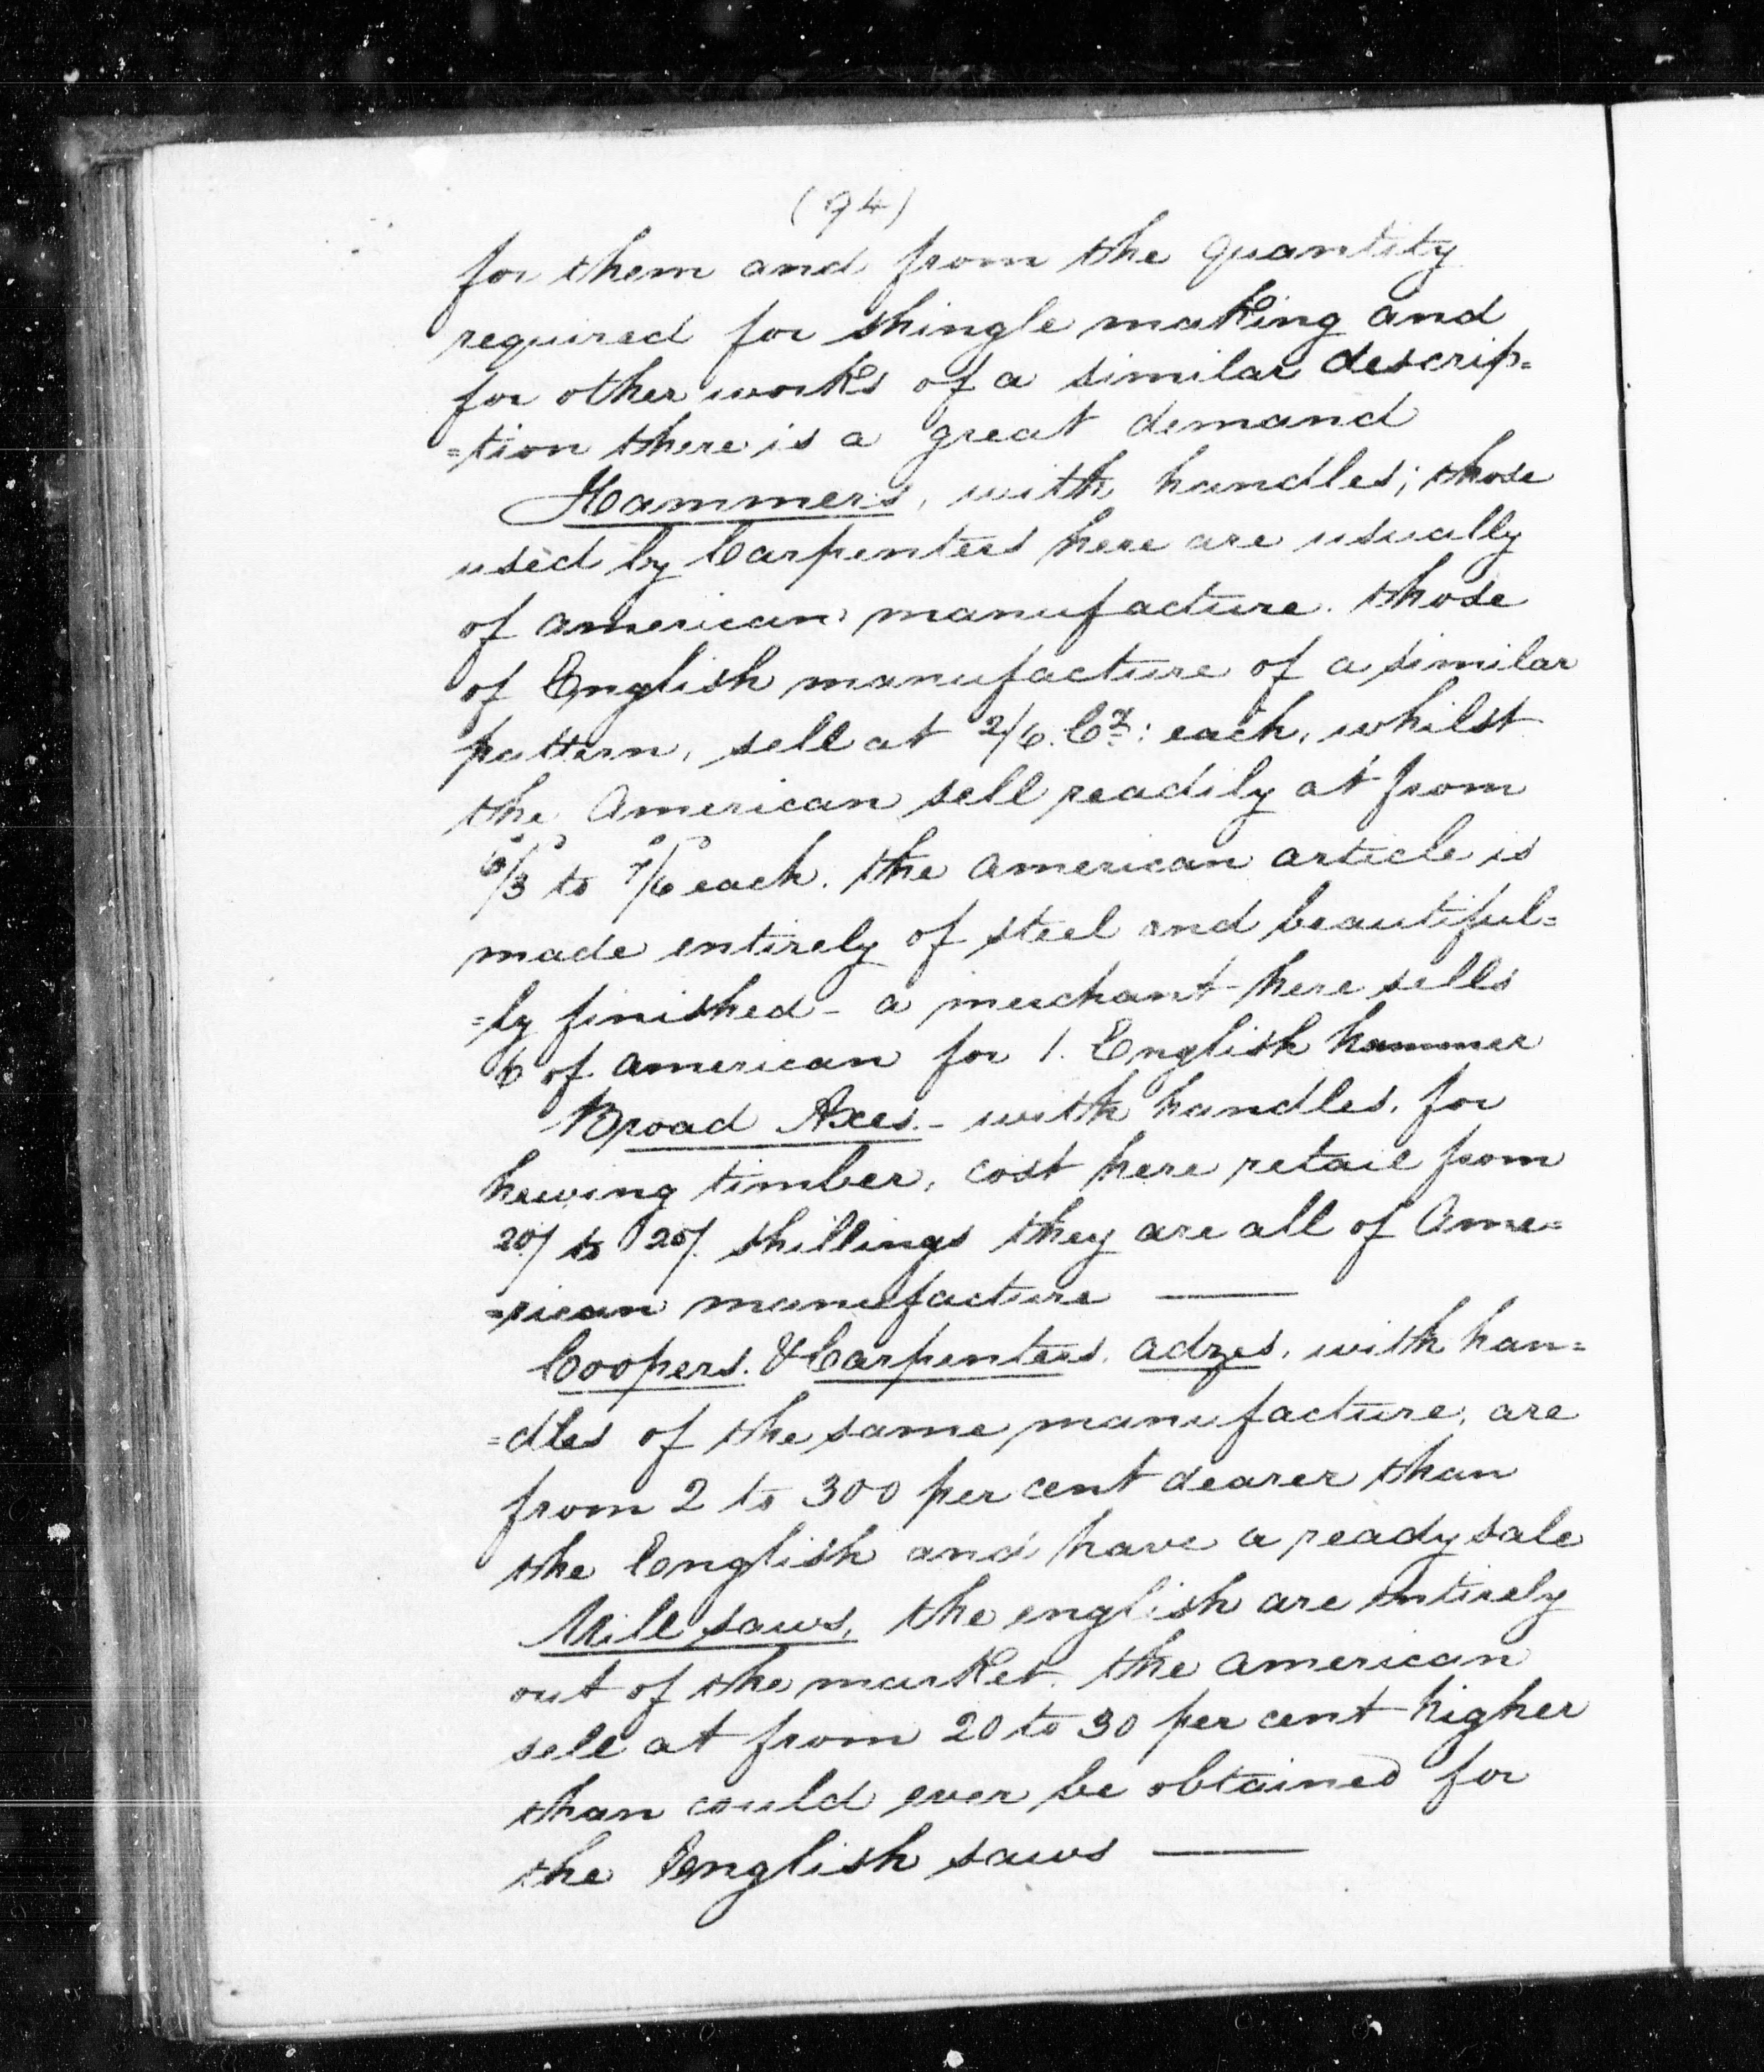 (94)
for them and from the quantity
required for shingle making and
for other works of a similar descrip=
=tion there is a great demand
Hammers, with handles; those
used by Carpenters here are usually
of american manufacture. those
of English manufacture of a similar
pattern, sell at 2/6. Cy: each, whilst
the American sell readily at from
6/3 to 7/6 each. the American article is
made entirely of steel and beautiful=
=ly finished - a merchant here sells
6 of American for 1. English hammer
Broad Axes. - with handles, for
hewing timber, cost here retail from
20/ to shillings they are all of Ame=
=rican manufacture ——
Coopers. & Carpenters. adzes, with han=
=dles of the same manufacture, are
from 2 to 300 per cent dearer than
the English and have a ready sale
Mill saws, the english are entirely
out of the market. the American
sell at from 20 to 30 per cent higher
than could ever be obtained for
the English saws ——